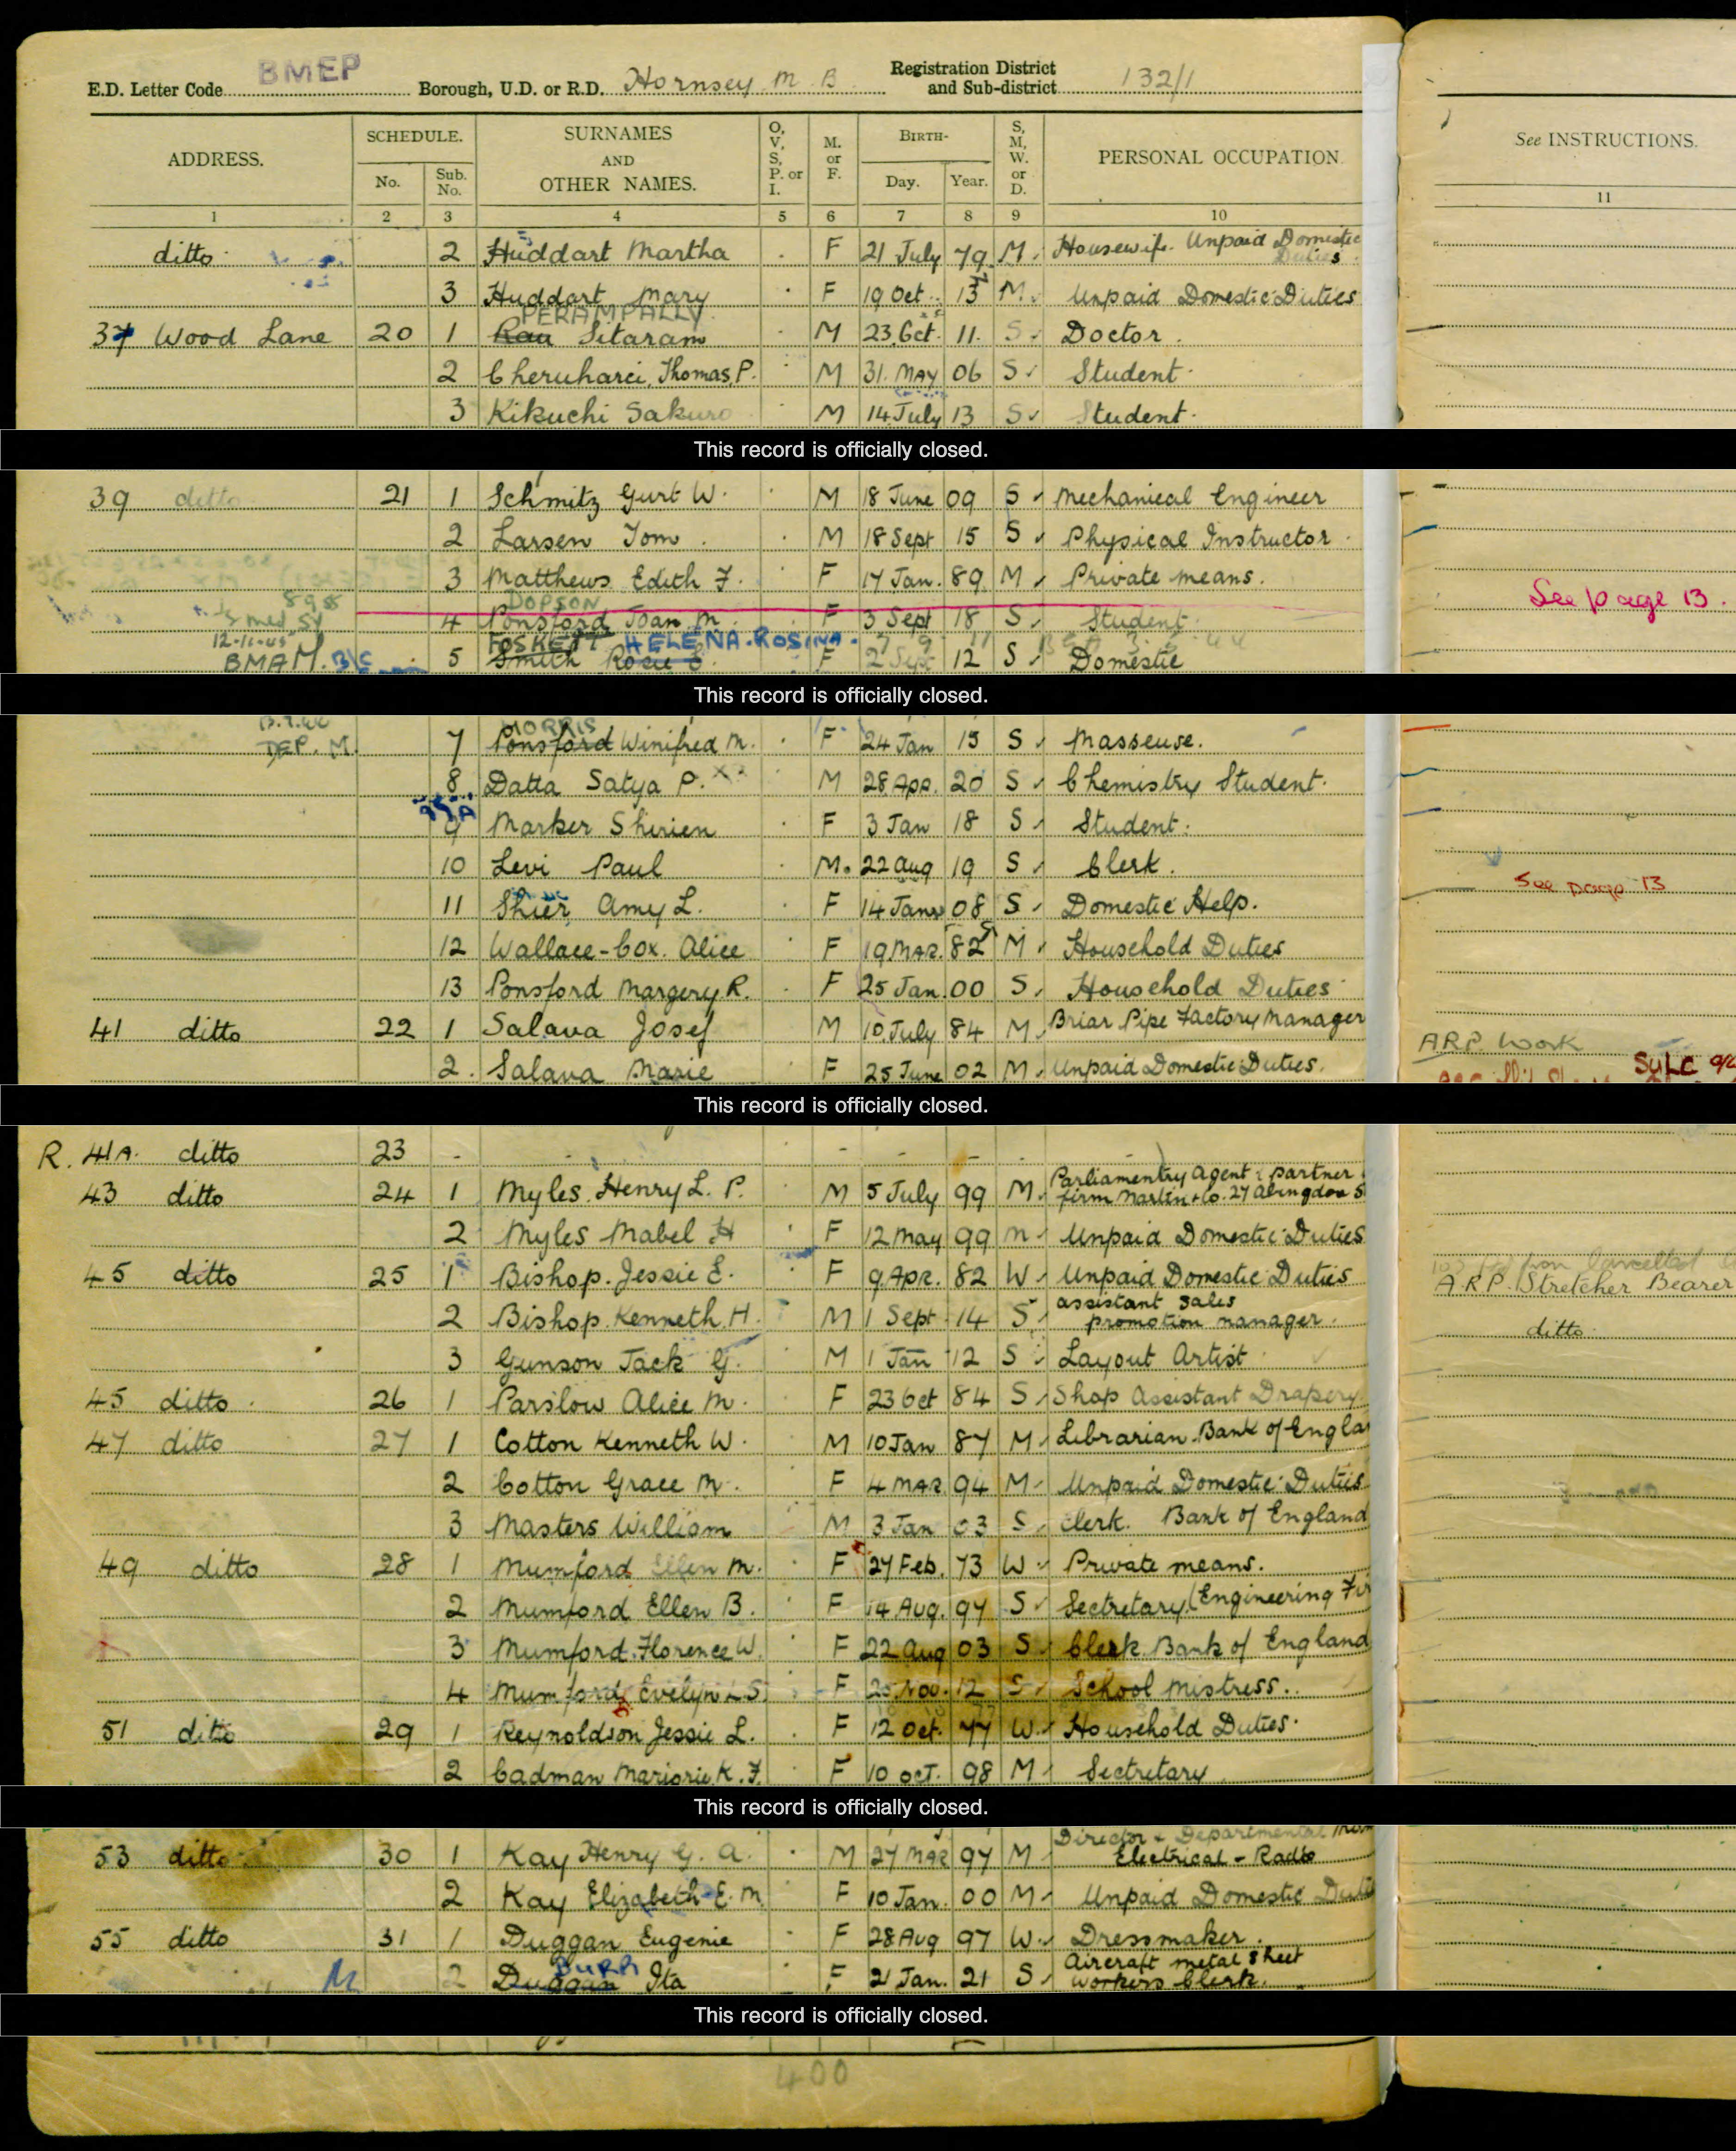 E.D. Letter Code BMEP Borough, U.D. or R.D. Hornsey M B Registration District and Sub-district 132/1
ADDRESS. SCHEDULE. No. Sub. No. SURNAMES AND OTHER NAMES. O, V, S, P. or I. M. or F. BIRTH- Day. Year. S, M, W. or D. PERSONAL OCCUPATION. See INSTRUCTIONS.
1 2 3 4 5 6 7 8 9 10 11
ditto 2 Huddart Martha F 21 July 79 M Housewife. Unpaid Domestic Duties
3 Huddart Mary F 19 Oct 13 M Unpaid Domestic Duties
PERAMPALLY
37 Wood Lane 20 1 Rau Sitaram M 23 Oct 11 S Doctor.
2 Thomas P. M 31 MAY 06 S Student
3 Kikuchi Sakuro M 14 July 13 S Student
This record is officially closed.
39 ditto 21 1 Schmitz Gurt W. M 18 June 09 S Mechanical Engineer
2 Larsen Tom. M 18 Sept 15 S Physical Instructor
3 Matthews Edith F. F 17 Jan. 89 M Private means.
DOPSON See page 13.
4 Ponsford Joan M. F 3 Sept 18 S Student
12-11-45 FOSKETT HELENA.ROSINA.
BMAM. B/C 5 Smith Rosie E F 2 Sept 12 S Domestic
This record is officially closed.
MORRIS
DEP. M. 7 Ponsford Winifred M. F 24 Jan 15 S Masseuse.
8 Datta Satya P. M 28 Apr. 20 S Chemistry Student.
9 Marker Shirien F 3 Jan 18 S Student.
10 Levi Paul M. 22 Aug 19 S Clerk. See page 13
11 Shier Amy L. F 14 Jan 08 S Domestic Help.
12 Wallace-Cox. Alice F 19 MAR. 82 M Household Duties
13 Ponsford Margery R. F 25 Jan. 00 S Household Duties
41 ditto 22 1 Salava Josef M 10 July 84 M Briar Pipe Factory Manager ARP. Work
2. Salava Marie F 25 June 02 M Unpaid Domestic Duties. SULC
This record is officially closed.
R. 41A. ditto 23 - - - -
43 ditto 24 1 Myles. Henry L. P. M 5 July 99 M. Parliamentry Agent partner firm Martin & Co. 27 Abingdon S
2 Myles Mabel H F 12 May 99 M Unpaid Domestic Duties
45 ditto 25 1 Bishop. Jessie E. F 9 Apr. 82 W Unpaid Domestic Duties A.R.P. Stretcher Bearer
2 Bishop. Kenneth. H. M 1 Sept 14 S assistant sales promotion manager. ditto
3 Gunson Jack G. M 1 Jan 12 S Layout Artist
45 ditto 26 1 Parslow Alice M. F 23 Oct 84 S Shop Assistant Drapery
47 ditto 27 1 Cotton Kenneth W. M 10 Jan 87 M Librarian Bank of Engla
2 Cotton Grace M. F 4 MAR. 94 M Unpaid Domestic Duties
3 Masters William M 3 Jan 03 S Clerk. Bank of England
49 ditto 28 1 Mumford Ellen M. F 27 Feb. 73 W Private means.
2 Mumford Ellen B. F 14 Aug. 97 S Sectretary (Engineering Fir
3 Mumford. Florence W. F 22 Aug 03 S Clerk Bank of England
4 Mumford. Evelyn L S. F Nov. 12 S School Mistress.
51 ditto 29 1 Reynoldson Jessie L. F 12 Oct. 77 W Household Duties.
2 Cadman Marjorie K. F. F 10 OCT. 98 M Sectretary
This record is officially closed.
53 ditto 30 1 Kay Henry G. A. M 27 MAR 97 M Director & Departmental Electrical - Radio
2 Kay Elizabeth E. M. F 10 Jan. 00 M Unpaid Domestic Duties
55 ditto 31 1 Duggan Eugenie F 28 Aug 97 W Dressmaker.
BURR
M 2 Duggan Ita F 21 Jan. 21 S Aircraft metal sheet workers Clerk.
This record is officially closed.
400